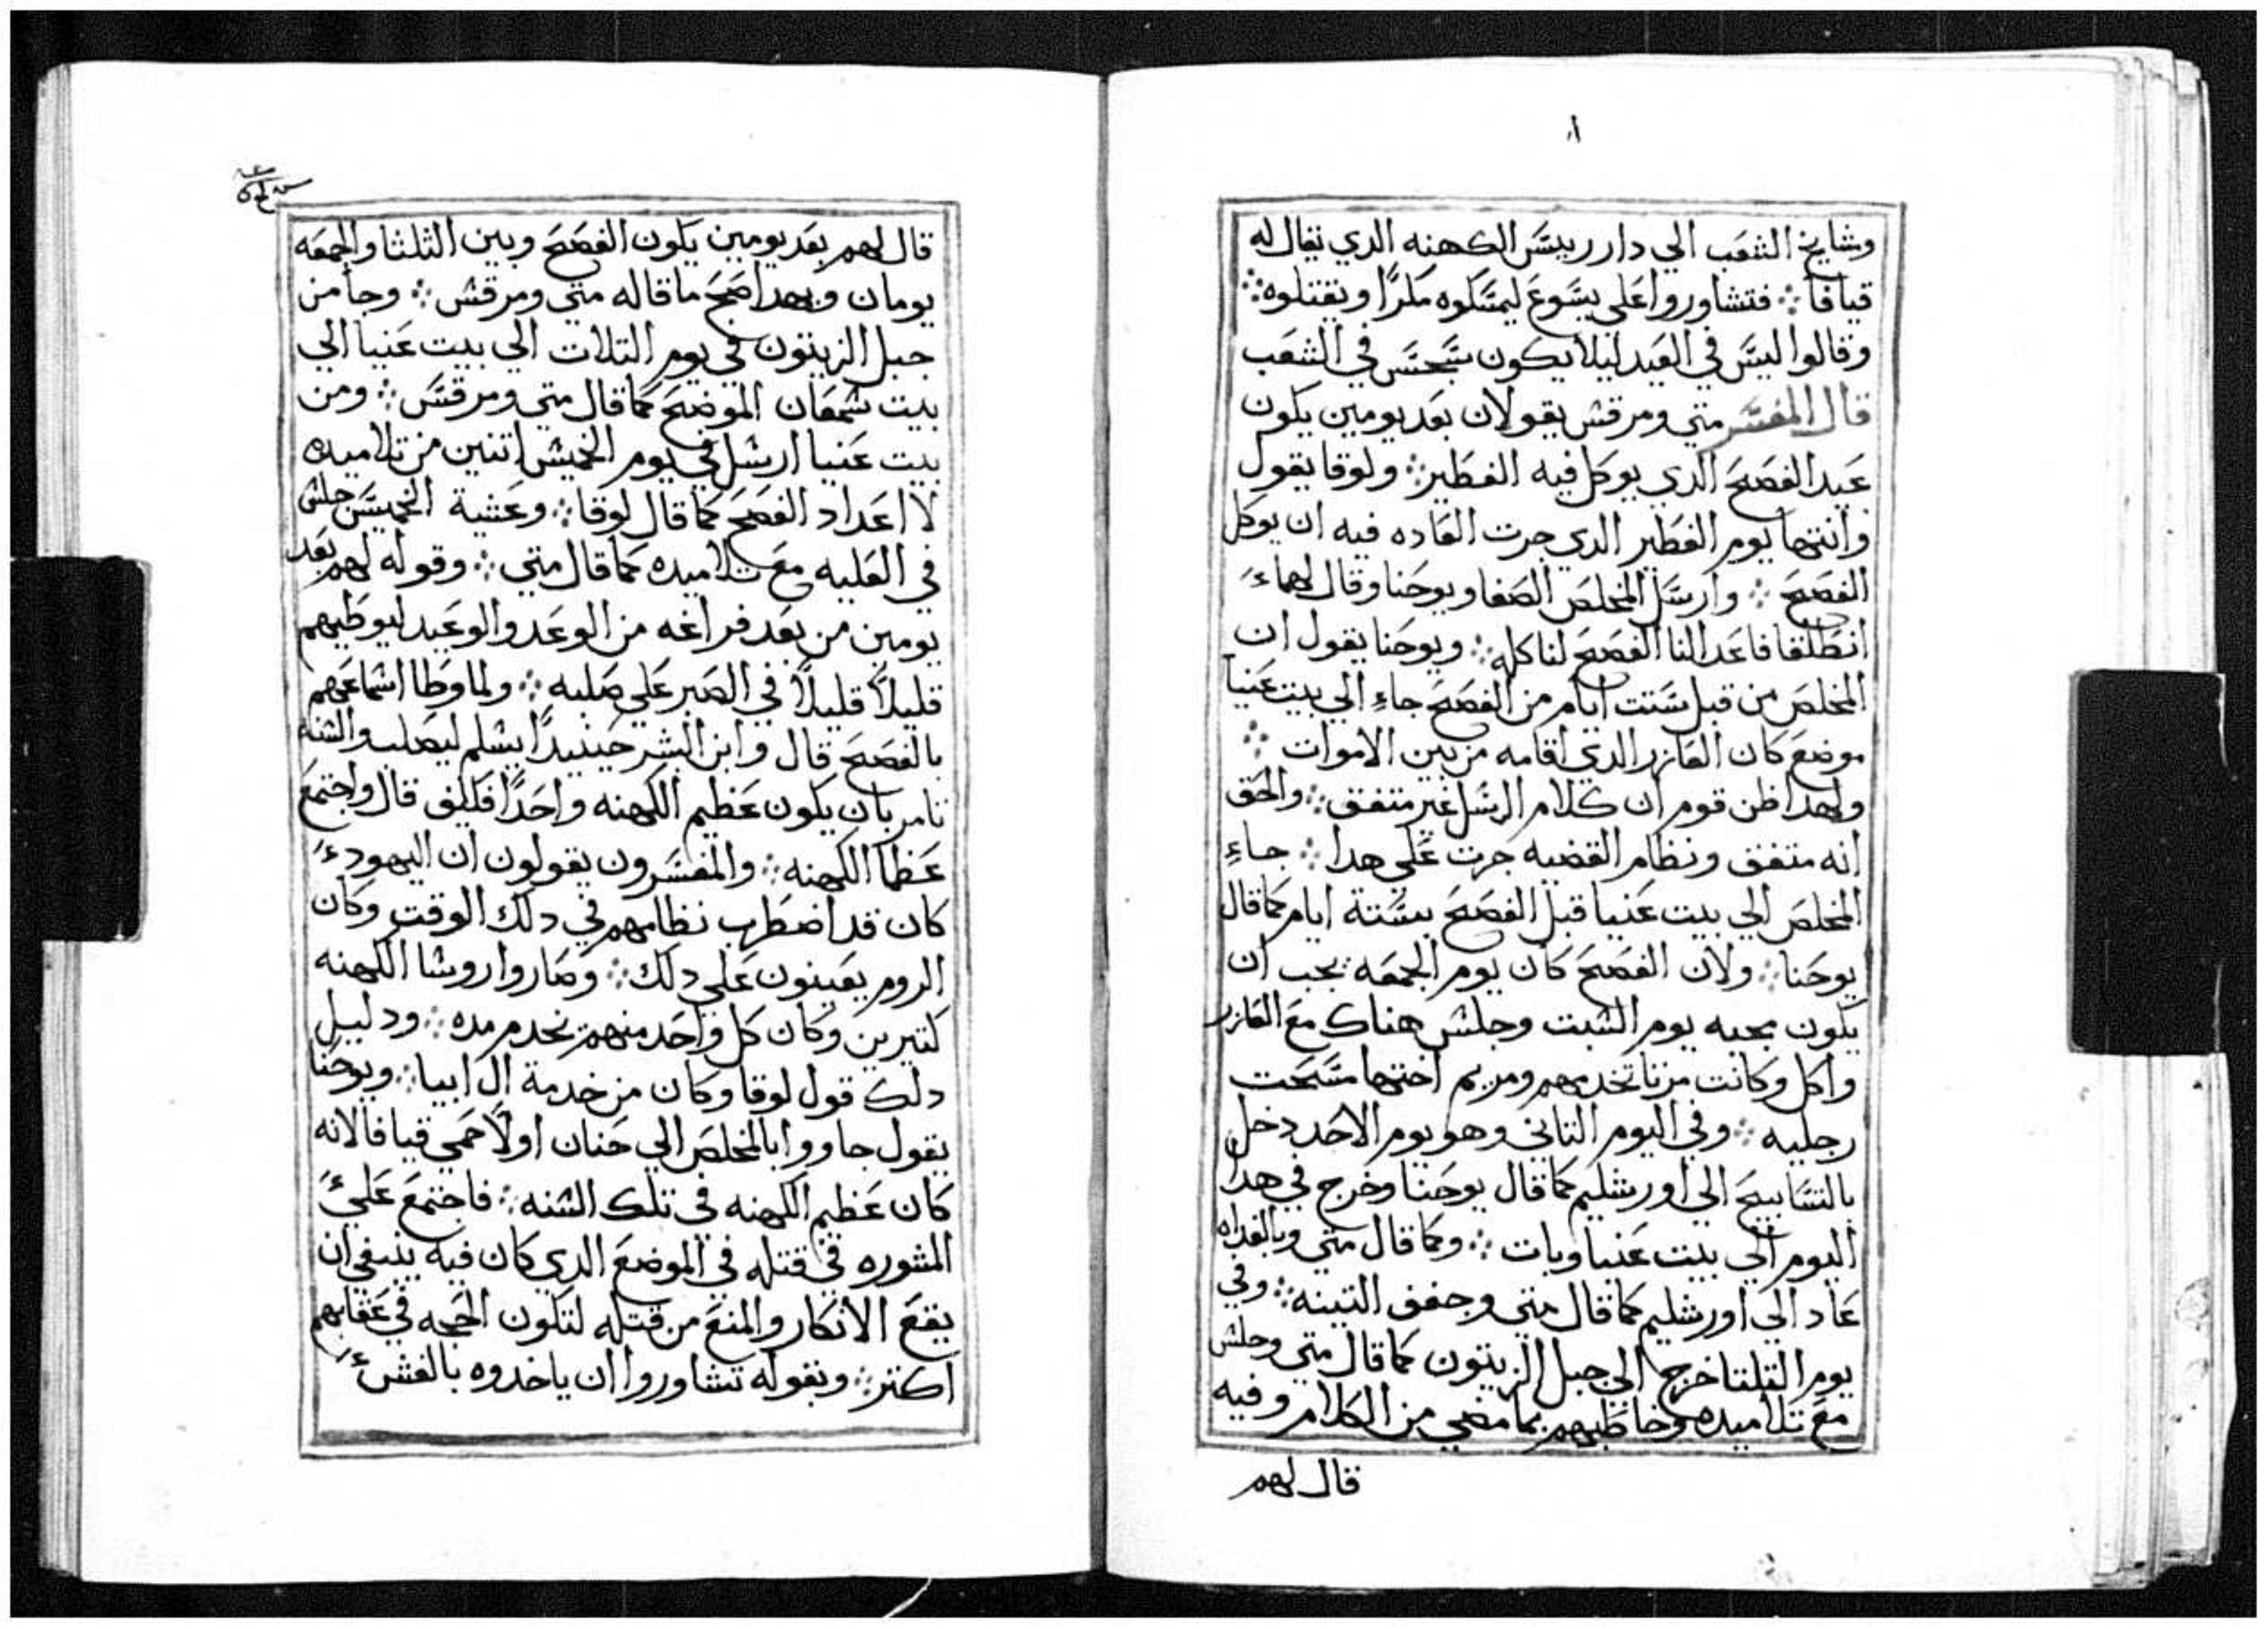 وشايخ الشعب الي دار رييس الكهنه الدي يقال له
قيافا ܀ فتشاوروا علي يسوع ليمسكوه مكرًا ويقتلوه ܀
وقالوا ليس في العيد ليلا يكون سجس في الشعب
قال المفسر متي ومرقس يقولان بعد يومين يكون
عيد الفصح الدي يوكل فيه الفطير ܀ ولوقا يقول
وانتها يوم الفطير الدي جرت العاده فيه ان يوكل
الفصح ܀ وارسل المخلص الصفا ويوحنا وقال لهما
انطلقا فاعدا لنا الفصح لناكله ܀ ويوحنا يقول ان
المخلص من قبل ستت ايام من الفصح جاء الي بيت عنيا
موضع كان العازر الدي اقامه من بين الاموات ܀
ولهدا ظن قوم ان كلام الرسل غير متفق ܀ والحق
انه متفق ونظام القضيه جرت علي هدا ܀ جاء
المخلص الي بيت عنيا قبل الفصح بستة ايام كما قال
يوحنا ܀ ولان الفصح كان يوم الجمعه يجب ان
يكون مجيه يوم السبت وجلس هناك مع العازر
واكل وكانت مرتا تخدمهم ومريم اختها مسحت
رجليه ܀ وفي اليوم التاني وهو يوم الاحد دخل
بالتسابيح الي اورشليم كما قال يوحنا وخرج في هدا
اليوم الي بيت عنيا وبات ܀ وكما قال متي وبالغداه
عاد الي اورشليم كما قال متي وجفف التينه ܀ وفي
يوم التلتا خرج الي جبل الزيتون كما قال متي وجلس
مع تلاميده وخاطبهم بما مضي من الكلام وفيه
قال لهم
قال لهم بعد يومين يكون الفصح وبين الثلثا والجمعه
يومان وبهدا صح ما قاله متي ومرقس ܀ وجا من
جبل الزيتون في يوم التلات الي بيت عنيا الي
بيت شمعان الموضح كما قال متي ومرقس ܀ ومن
بيت عنيا ارسل في يوم الخميس اتنين من تلاميده
لا اعداد الفصح كما قال لوقا ܀ وعشية الخميس جلس
في العليه مع تلاميده كما قال متي ܀ وقوله لهم بعد
يومين من بعد فراغه من الوعد والوعيد ليوطيهم
قليلاً قليلاً في الصبر علي صلبه ܀ ولما وطا اسماعهم
بالفصح قال وابن البشر حينيدًا يسلم ليصلب والسنه
تامر بان يكون عظيم الكهنه واحدًا فكيف قال واجتمع
عظما الكهنه ܀ والمفسرون يقولون ان اليهود
كان قد اضطرب نظامهم في دلك الوقت وكان
الروم يعينون علي دلك ܀ وصاروا روسا الكهنه
كتيرين وكان كل واحد منهم يخدم مده ܀ ودليل
دلك قول لوقا وكان من خدمة ال ابيا ܀ ويوحنا
يقول جاووا بالمخلص الي حنان اولاً حمي قيافا لانه
كان عظيم الكهنه في تلك السنه ܀ فاجتمع علي
المشوره في قتله في الموضع الدي كان فيه ينبغي ان
يقع الانكار والمنع من قتله لتكون الحجه في عقابهم
اكتر ܀ وبقوله تشاوروا ان ياخدوه بالغش